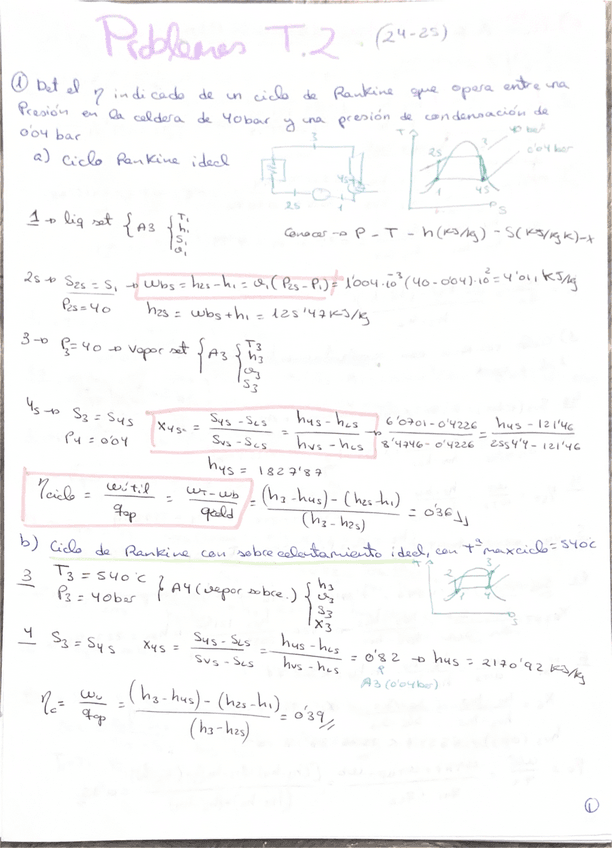 Problemas T.2 (24-25)
① Det el η indicado de un ciclo de Rankine que opera entre una
Presión en la caldera de 40bar y una presión de condensación de
0'04 bar
a) Ciclo Rankine ideal
3
4s
2s
1
T
2s
3
40 bar
0'04 bar
1
4s
S
1 → liq sat { A3 { T1 h1 s1 v1
Conocer → P - T - h(KJ/kg) - S(KJ/kgK) - x
2s → S2s = S1 → wbs = h2s - h1 = v1 (P2s - P1) = 1'004·10⁻³ (40 - 0'04)·10² = 4'011 KJ/kg
P2s = 40
h2s = wbs + h1 = 125'47 KJ/kg
3 → P3 = 40 → Vapor sat { A3 { T3 h3 v3 s3
4s → S3 = S4s
P4 = 0'04
x4s = (S4s - SLs)/(Svs - SLs) = (h4s - hLs)/(hvs - hLs) → (6'0701 - 0'4226)/(8'4746 - 0'4226) = (h4s - 121'46)/(2554'4 - 121'46)
h4s = 1827'87
ηciclo = wútil/qap = (wT - wb)/qcald = ((h3 - h4s) - (h2s - h1))/(h3 - h2s) = 0'36
b) Ciclo de Rankine con sobrecalentamiento ideal, con tª max ciclo = 540ºC
3 T3 = 540ºC
P3 = 40bar } A4 (vapor sobre.) { h3 v3 s3 x3
T
2
3
1
4
S
4 S3 = S4s x4s = (S4s - SLs)/(Svs - SLs) = (h4s - hLs)/(hvs - hLs) = 0'82 → h4s = 2170'92 KJ/kg
A3 (0'04bar)
ηc = wu/qap = ((h3 - h4s) - (h2s - h1))/(h3 - h2s) = 0'39
①